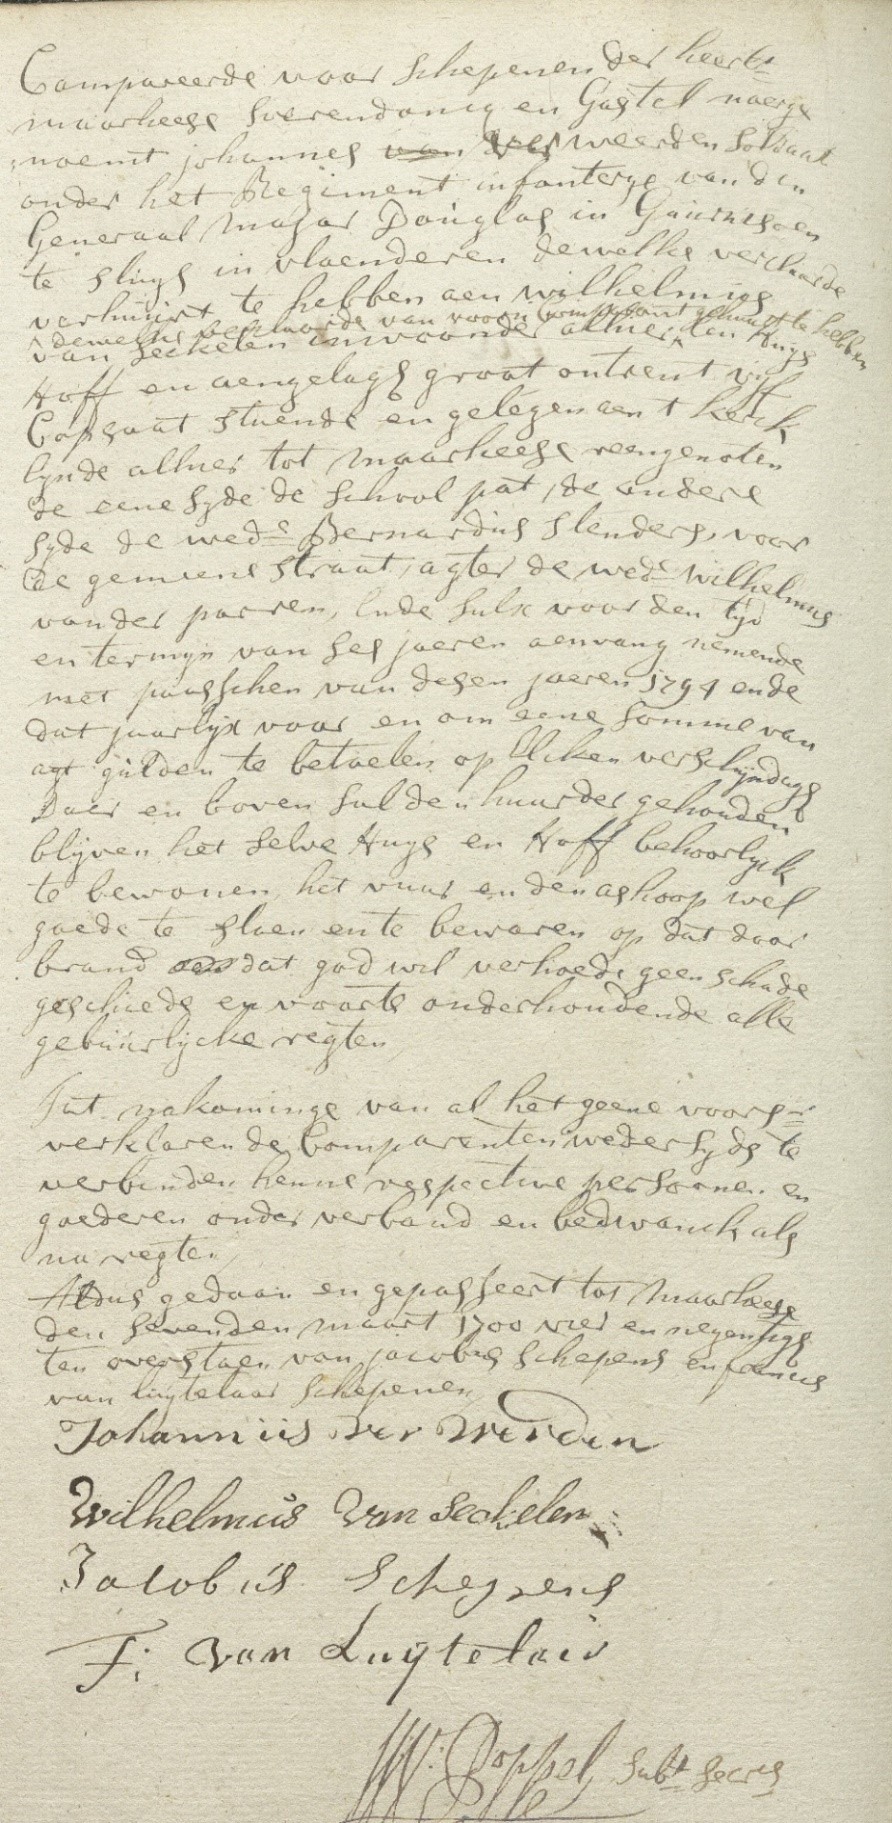 Compareerde voor Schepenen der heerlt
maarheese Soerendonck en Gastel naerge
noemt johannes van ver weerden Soldaat
onder het Regiment infanterye van den
Generaal Major Douglas in Guarnisoen
te Sluys in vlaenderen dewelke verclaarde
verhuurt te hebben aen wilhelmus
dewelke verclaarde van voorn comparant gehuurt te hebben
van Seckelen inwoonder alhier, een Huys
Hoff en aengelagh groot ontrent vijf
Copsaat staende en gelegen aen t kerck
eynde alhier tot maarheese reengenoten
de eene syde de School pat, de andere
syde de wede Bernardus Slenders, voor
de gemeene Straat, agter de wede wilhelmus
vander parren, Ende Sulx voor den tyd
en termyn van Ses jaeren aenvang nemende
met paasschen van desen jaeren 1794 ende
dat jaarlyx voor en om eene Somme van
agt gulden te betaelen op Elcken verschyndagh
Daer en boven sal den huurder gehouden
blijven het selve Huys en Hoff behoorlyck
te bewonen, het vuur en den ashoop wel
gaede te slaen en te bewaren op dat door
brand dat god wil verhoede geen schade
geschiede en voorts onderhoudende alle
gebuurlycke regten

Tut nakominge van al het geene voors
verklaren de Comparenten wedersyds te
verbinden henne respective persoonen en
goederen onder verband en bedwanck als
na regten
Aldus gedaan en gepasseert tot maarheese
den sevenden maart 1700 vier en negentigh
ten overstaen van jacobus Schepens en francis
van luytelaar Schepenen
Johannes ver werden
Wilhelmus Van Seckelen
Jacobus Schepens
F: van Luijtelair
Poppel Subt Secrs